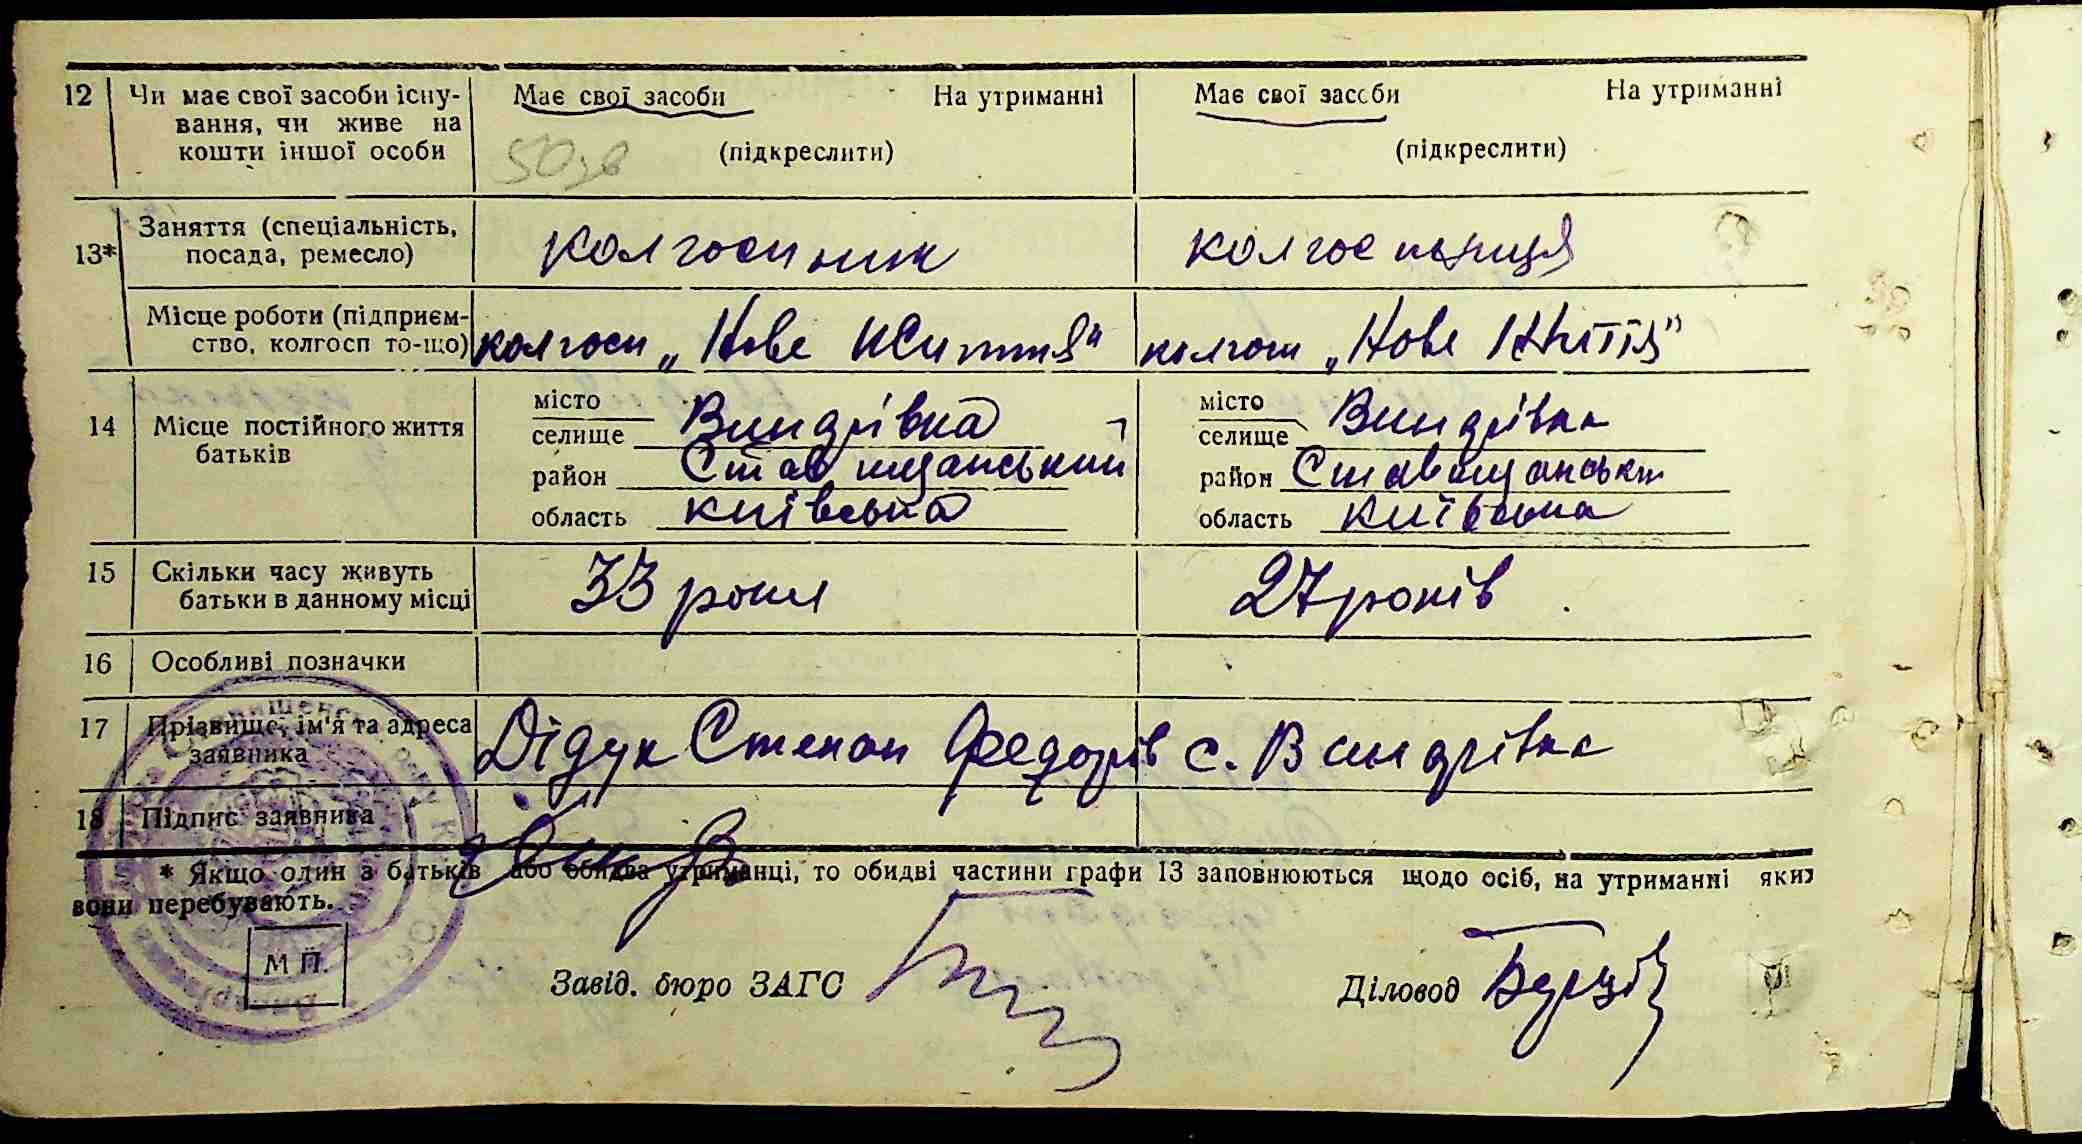 12 Чи має свої засоби існу- Має свої засоби На утриманні Має свої засоби На утриманні
вання, чи живе на
кошти іншої особи (підкреслити) (підкреслити)
13* Заняття (спеціальність, колгоспник колгоспниця
посада, ремесло)
Місце роботи (підприєм- колгосп „Нове Життя" колгосп „Нове Життя"
ство, колгосп то-що)
14 Місце постійного життя місто Виндрівка місто Виндрівка
батьків селище селище
район Ставищанський район Ставищанськ
область київська область київська
15 Скільки часу живуть 33 роки 27 років
батьки в данному місці
16 Особливі позначки
17 Прізвище, ім'я та адреса Дідук Степан Федорів с. Виндрівка
заявника
18 Підпис заявника
* Якщо один з батьків або обидва утриманці, то обидві частини графи 13 заповнюються щодо осіб, на утриманні яких
вони перебувають.
М П.
Завід. бюро ЗАГС Діловод